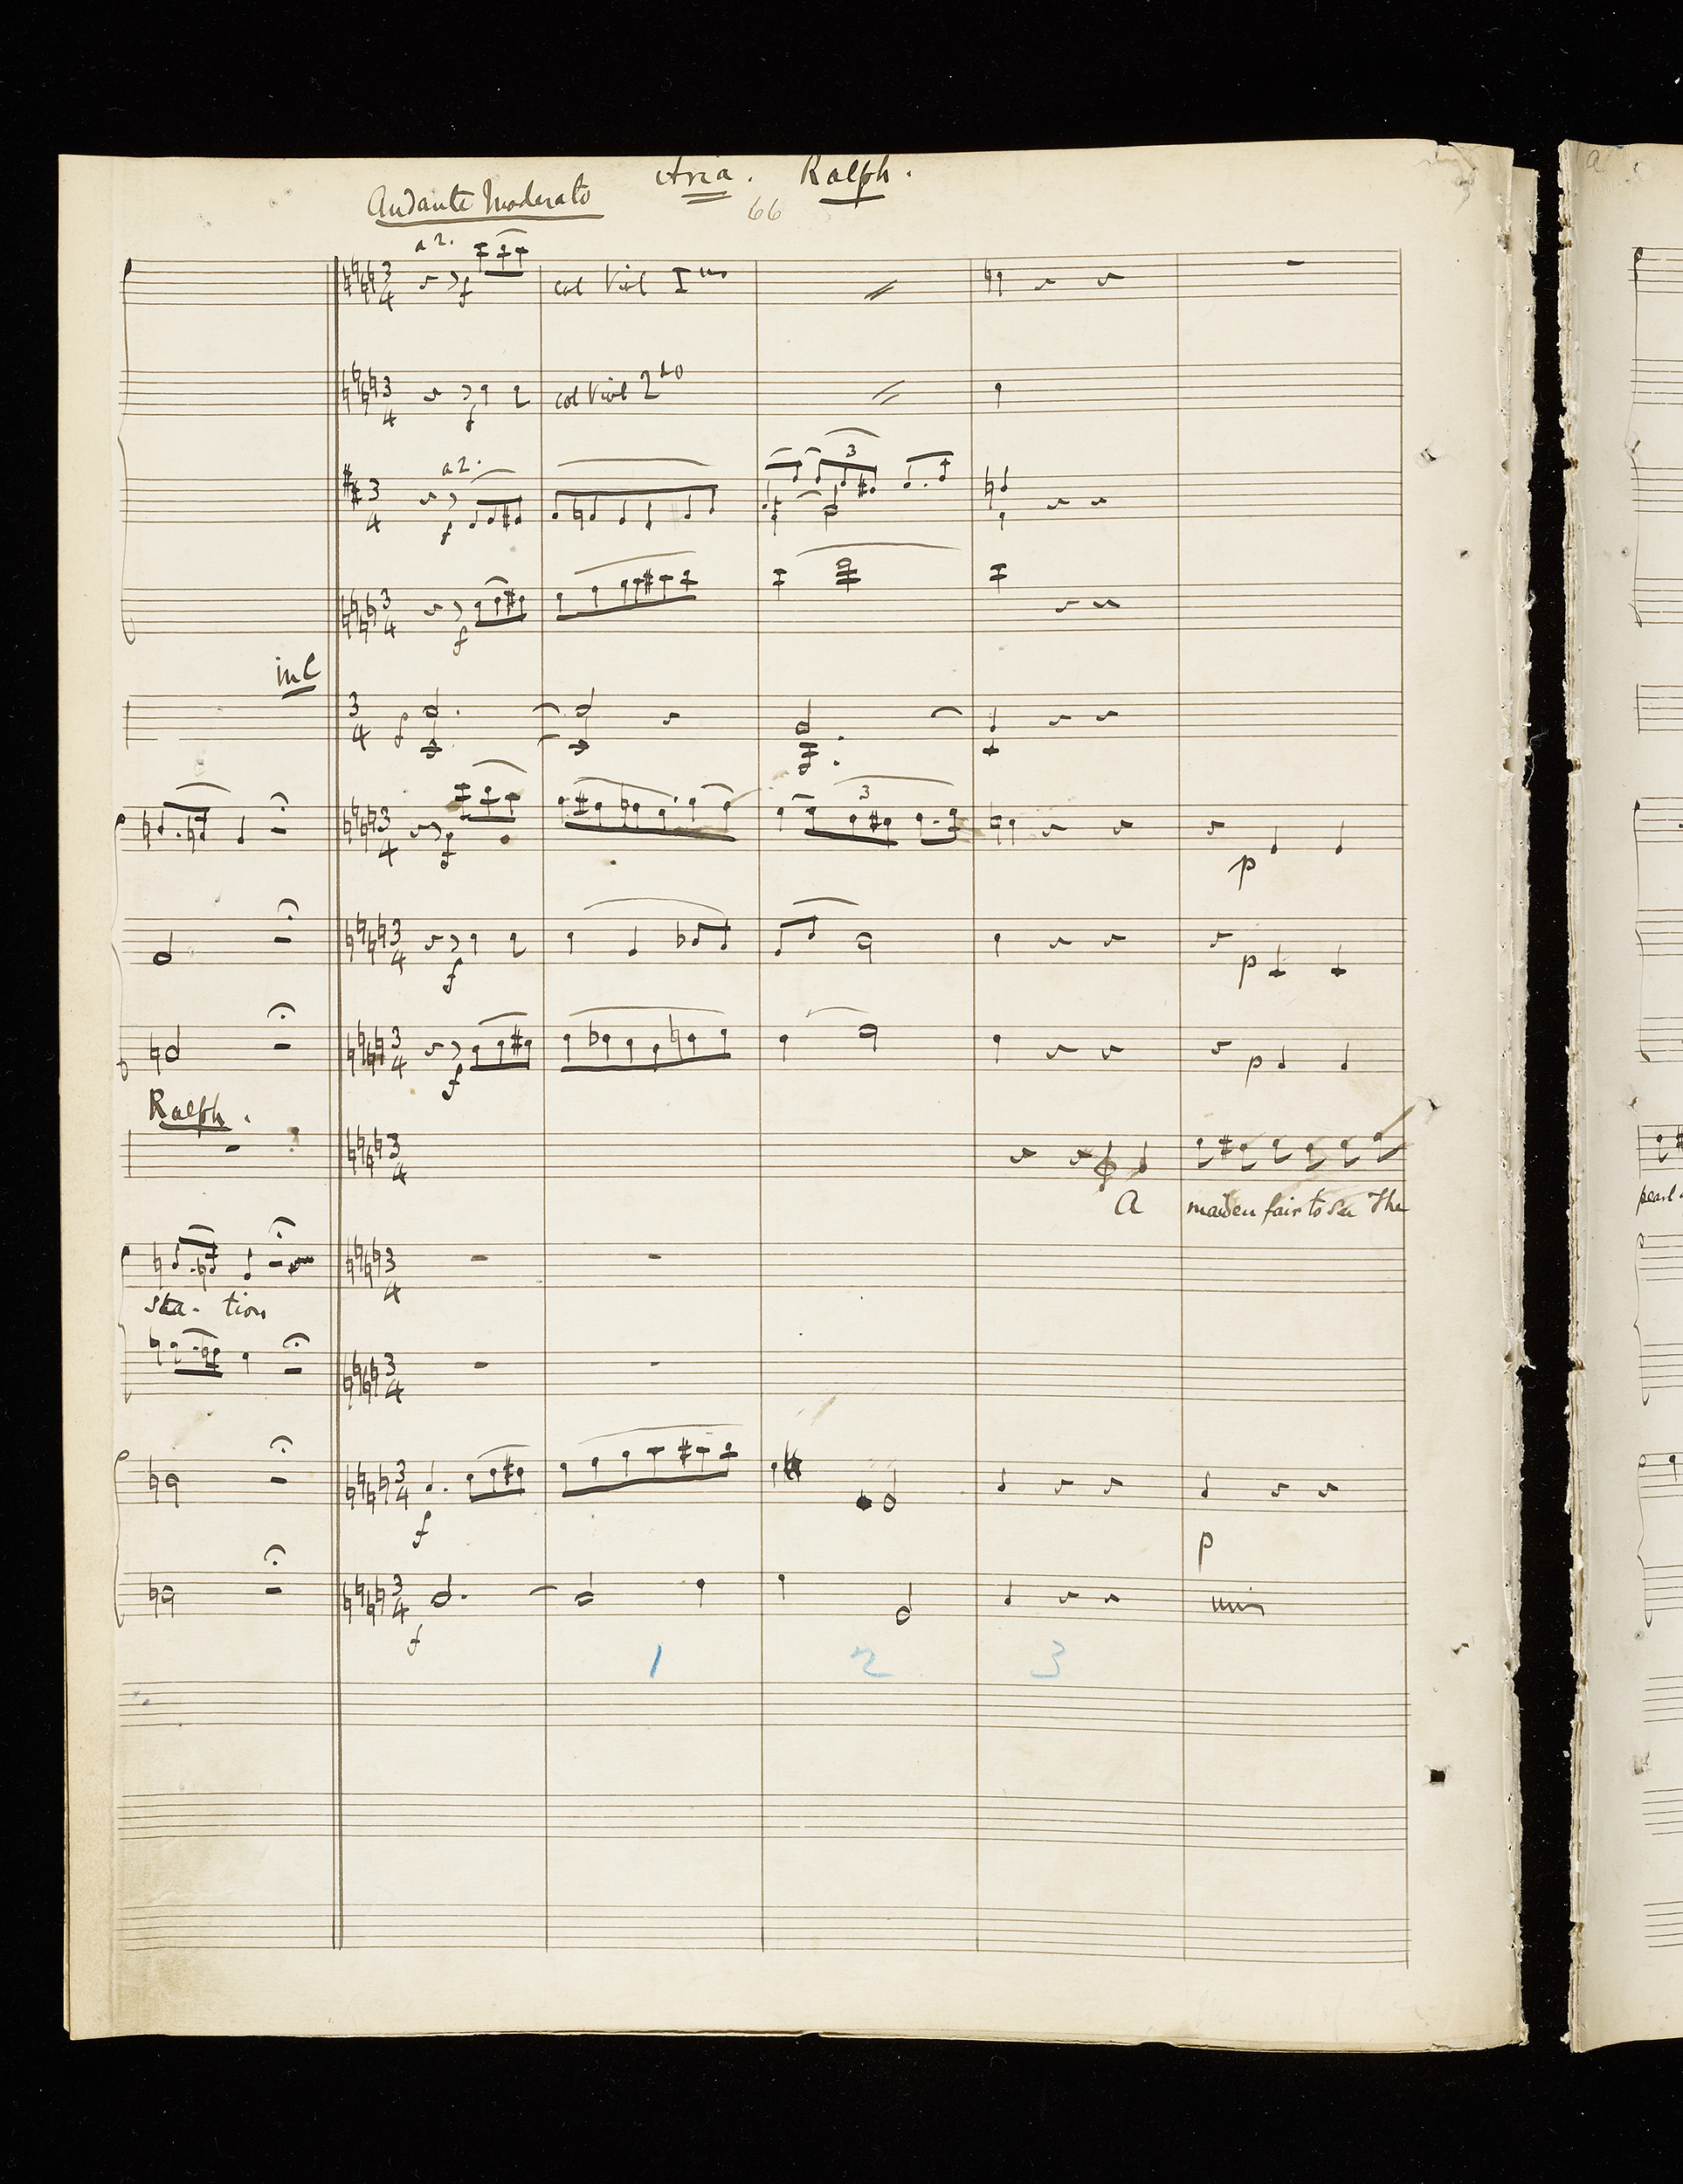 Aria. Ralph.
Andante Moderato
66
a 2.
f
col Viol Imo
f
col Viol 2do
a 2.
f
3
f
in C
f
f
3
p
f
p
f
p
Ralph.
A maiden fair to see The
pearl
sta- tion
f
p
f
1 2 3